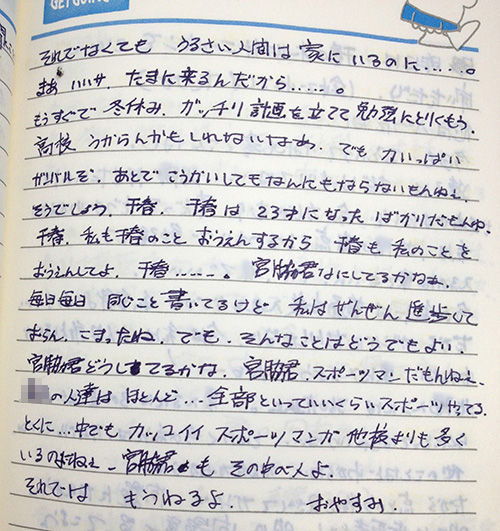 GETGOING
それでなくても うるさい人間は 家に いるのに……。
まあ いいサ. たまに来るんだから……。
もうすぐで 冬休み. ガッチリ 計画を立てて 勉強にとりくもう.
高校 うからんかもしれないなぁ. でも 力いっぱい
ガンバルぞ. あとで こうかいしてもなんにもならないもんねェ.
そうでしょう. 千春. 千春は 23才になった ばかりだもんね.
千春. 私も千春のこと おうえんするから 千春も 私のことを
おうえんしてよ. 千春……。 宮脇君なにしてるかなぁ.
毎日毎日 同じこと 書いてるけど 私はぜんぜん 進歩して
おらん. こまったね. でも. そんなことはどうでもよい.
宮脇君どうしてるかな. 宮脇君. スポーツマンだもんねェ.
の人達は ほとんど… 全部といっていいくらいスポーツやってる.
とくに… 中でも カッコイイ スポーツマンが 他校よりも多く
いるのよねェ 宮脇君も その中の人よ.
それでは もうねるよ. おやすみ.